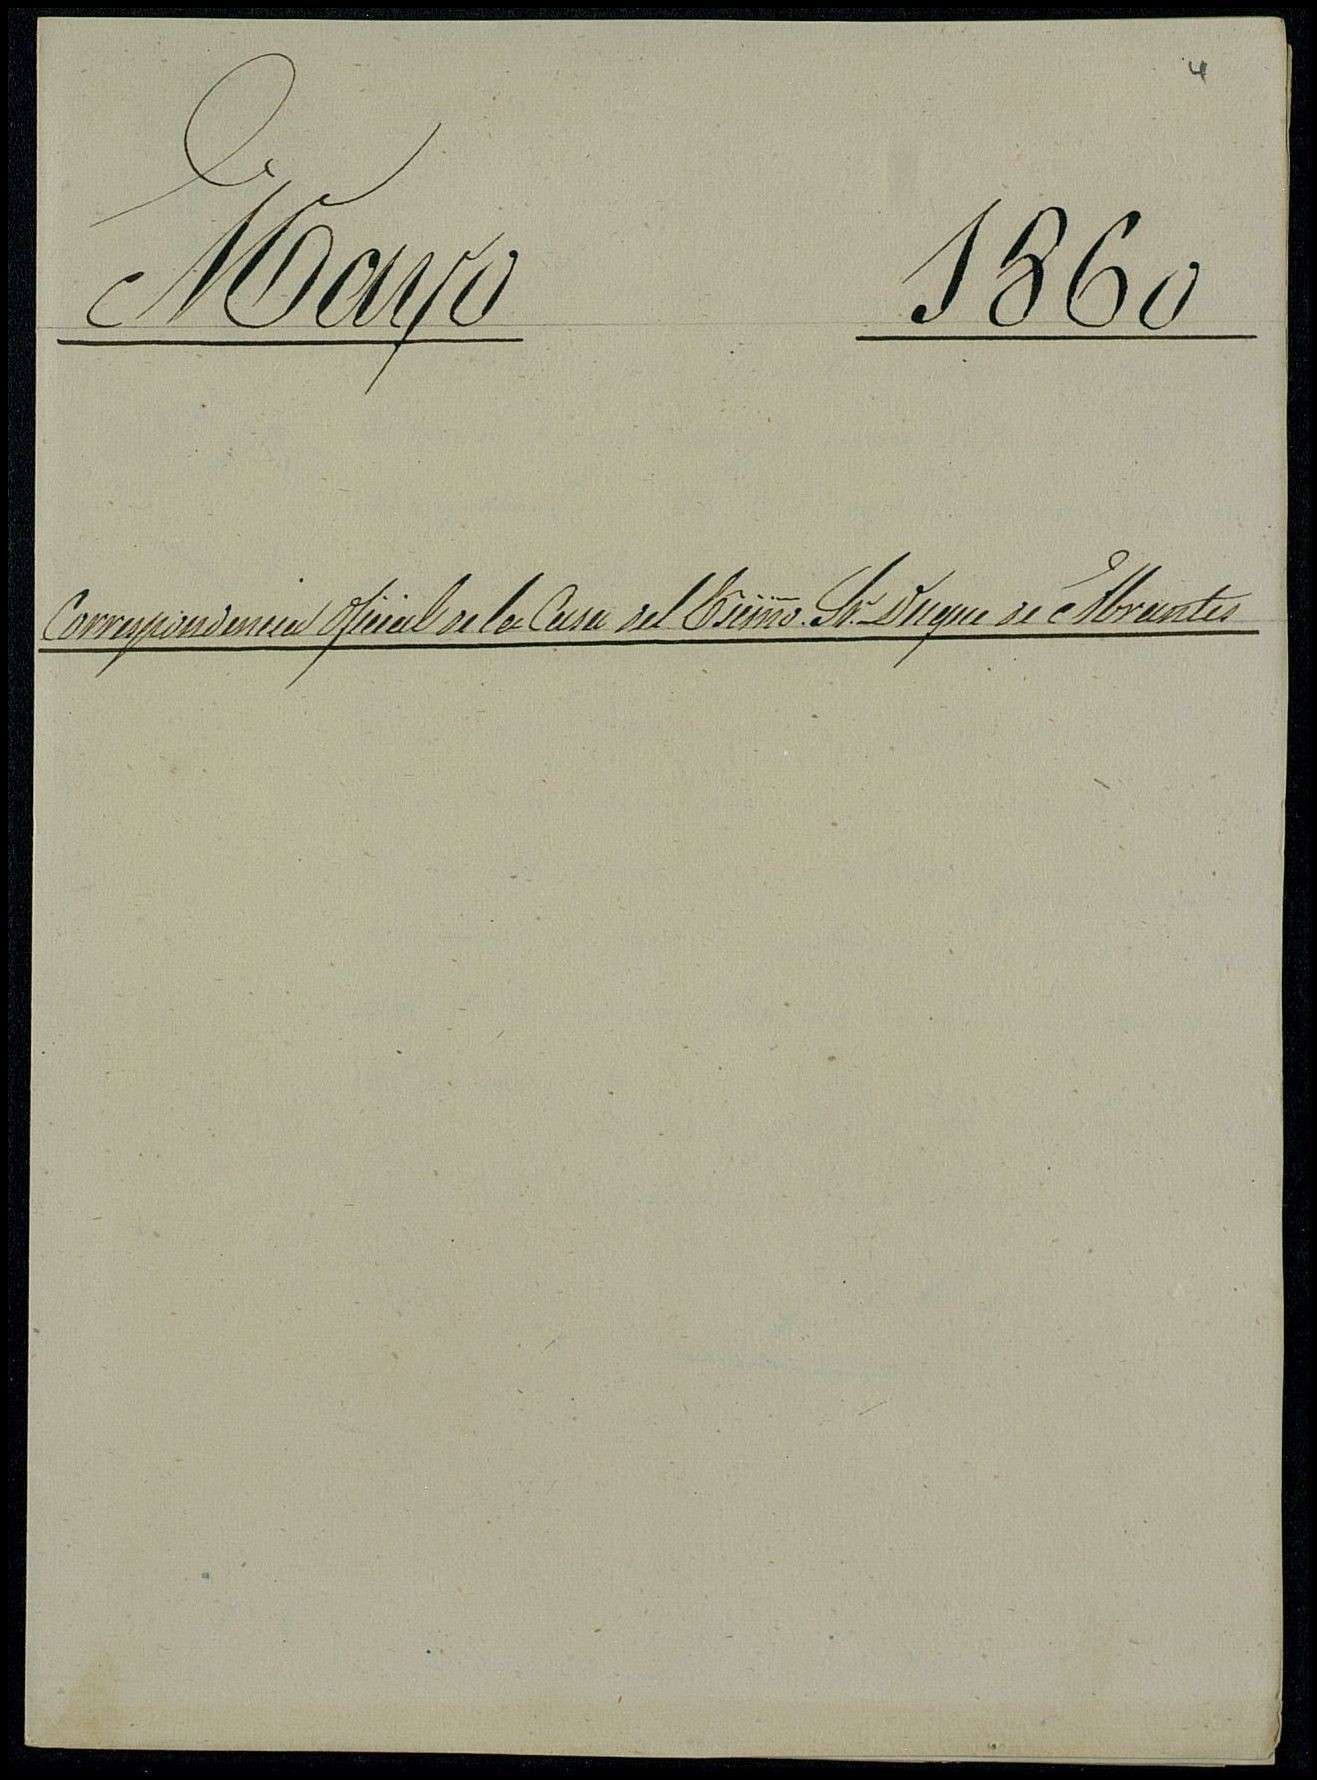 4
Mayo 1860
Correspondencia Oficial de la Casa del Escmo. Sr. Duque de Abrantes